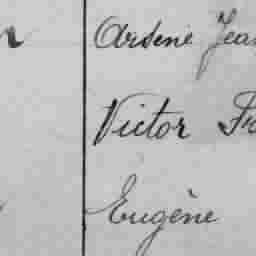 Arsène Jean
Victor Fr
Eugène